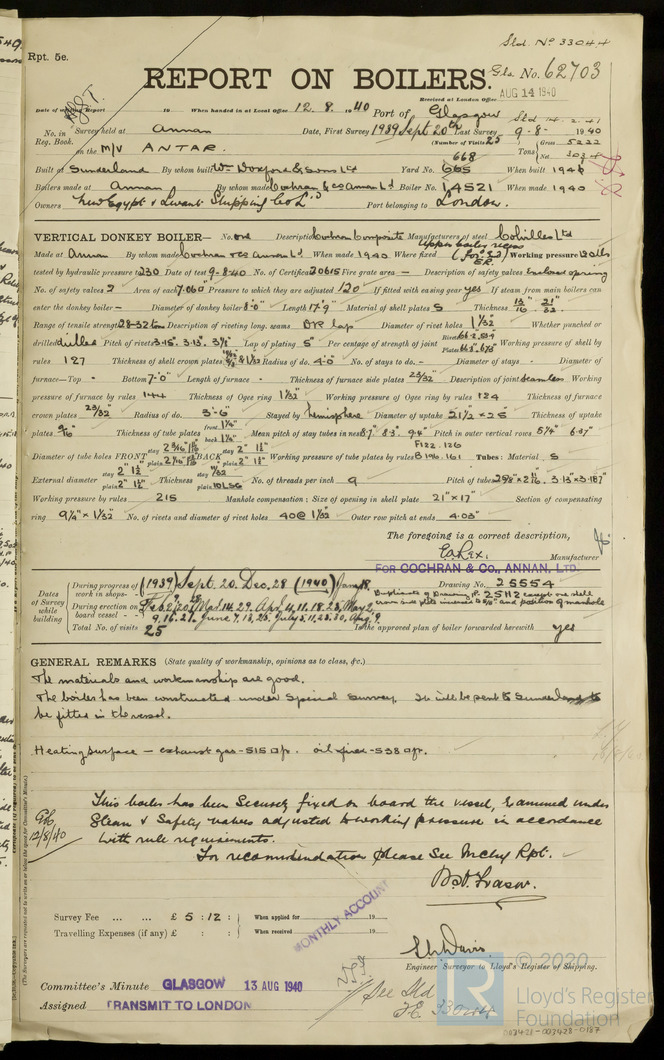 Sld. No 33044
Rpt. 5e.
REPORT ON BOILERS.
Gls. No. 62703
Received at London Office
AUG 14 1940
Date of writing Report 19 When handed in at Local Office 12. 8. 1940 Port of Glasgow
No. in Reg. Book. Survey held at Annan Date, First Survey 1939 Sept 20th Last Survey 9-8- 1940
(Number of Visits 25)
on the M/V ANTAR. Tons Gross 5222 Net
668
Built at Sunderland By whom built Wm Doxford & Sons Ltd Yard No. 665 When built 194
Boilers made at Annan By whom made Cochran & Co Annan Ld Boiler No. 14521 When made 1940
Owners New Egypt & Levant Shipping Co Ld Port belonging to London.
VERTICAL DONKEY BOILER— No. one Description Cochran Composite Manufacturers of steel Colvilles Ltd
Made at Annan By whom made Cochran & Co Annan Ld When made 1940 Where fixed Upper boiler recess E.R. Working pressure 120 lbs
tested by hydraulic pressure to 230 Date of test 9-8-40 No. of Certificate 20615 Fire grate area – Description of safety valves
No. of safety valves 2 Area of each 7.060" Pressure to which they are adjusted 120 If fitted with easing gear yes If steam from main boilers can
enter the donkey boiler – Diameter of donkey boiler 8'0" Length 17'9" Material of shell plates S Thickness 13/16" 21/32"
Range of tensile strength 28-32 tons Description of riveting long. seams DR lap Diameter of rivet holes 1 1/32" Whether punched or
drilled drilled Pitch of rivets 3.15" 3.13" 3 1/8" Lap of plating 5" Per centage of strength of joint Rivets Plates Working pressure of shell by
rules 127 Thickness of shell crown plates & 1 1/32 Radius of do. 4'0" No. of stays to do. – Diameter of stays – Diameter of
furnace—Top – Bottom 7'0" Length of furnace – Thickness of furnace side plates 23/32" Description of joint seamless Working
pressure of furnace by rules 144 Thickness of Ogee ring 1 1/32" Working pressure of Ogee ring by rules 124 Thickness of furnace
crown plates 23/32" Radius of do. 3'6" Stayed by hemisphere Diameter of uptake 21 1/2 x 25 Thickness of uptake
plates 9/16" Thickness of tube plates front 1 1/4" back 1 1/4" Mean pitch of stay tubes in nests 8.7" 8.3" 9.4" Pitch in outer vertical rows 5 1/4" 6.27"
Diameter of tube holes FRONT stay plain BACK stay 2" 1 1/2" plain 2" 1 1/2" Working pressure of tube plates by rules F 122. 126 B 196. 161 Tubes: Material S
External diameter stay 2" 1 1/2 plain 2" 1 1/2" Thickness stay 7/32 plain 10LSG No. of threads per inch 9 Pitch of tubes 2 7/8" x 2 7/16. 3.13" x 3.187"
Working pressure by rules 215 Manhole compensation: Size of opening in shell plate 21" x 17" Section of compensating
ring 9 1/4" x 1 1/32" No. of rivets and diameter of rivet holes 40 @ 1 1/32" Outer row pitch at ends 4.03"
The foregoing is a correct description,
E.A. Rex. Manufacturer
FOR COCHRAN & Co., ANNAN, LTD.
Dates of Survey while building
During progress of work in shops - - (1939) Sept. 20. Dec. 28 (1940) Jan. 18
Drawing No. 25554
During erection on board vessel - - - Feb 2 20 Mar 14. 29. Apr 4. 11. 18. 25. May 2.
9. 16. 21. June 7. 13. 25. July 5. 11. 25. 30. Aug 9.
Duplicate of Drawing No. 25112 except one shell crown side plate increased to 5/8" and position of manhole
Total No. of visits 25 Is the approved plan of boiler forwarded herewith yes
GENERAL REMARKS (State quality of workmanship, opinions as to class, &c.)
The materials and workmanship are good.
The boiler has been constructed under Special Survey. It will be sent to Sunderland to
be fitted in the vessel.
Heating surface — exhaust gas - 515 □ft. oil fired - 538 □ft.
Gls. 12/8/40
This boiler has been securely fixed on board the vessel, examined under
Steam & Safety valves adjusted to working pressure in accordance
with rule requirements.
For recommendation please see Mchy Rpt.
Fraser.
Survey Fee ... ... £ 5 : 12 : When applied for 19
Travelling Expenses (if any) £ : : When received 19
MONTHLY ACCOUNT
Davis
Engineer Surveyor to Lloyd's Register of Shipping.
Committee's Minute GLASGOW 13 AUG 1940
Assigned TRANSMIT TO LONDON
See Sld
F.E. 33044
© 2020
LR
Lloyd's Register
Foundation
003428-003428-0187